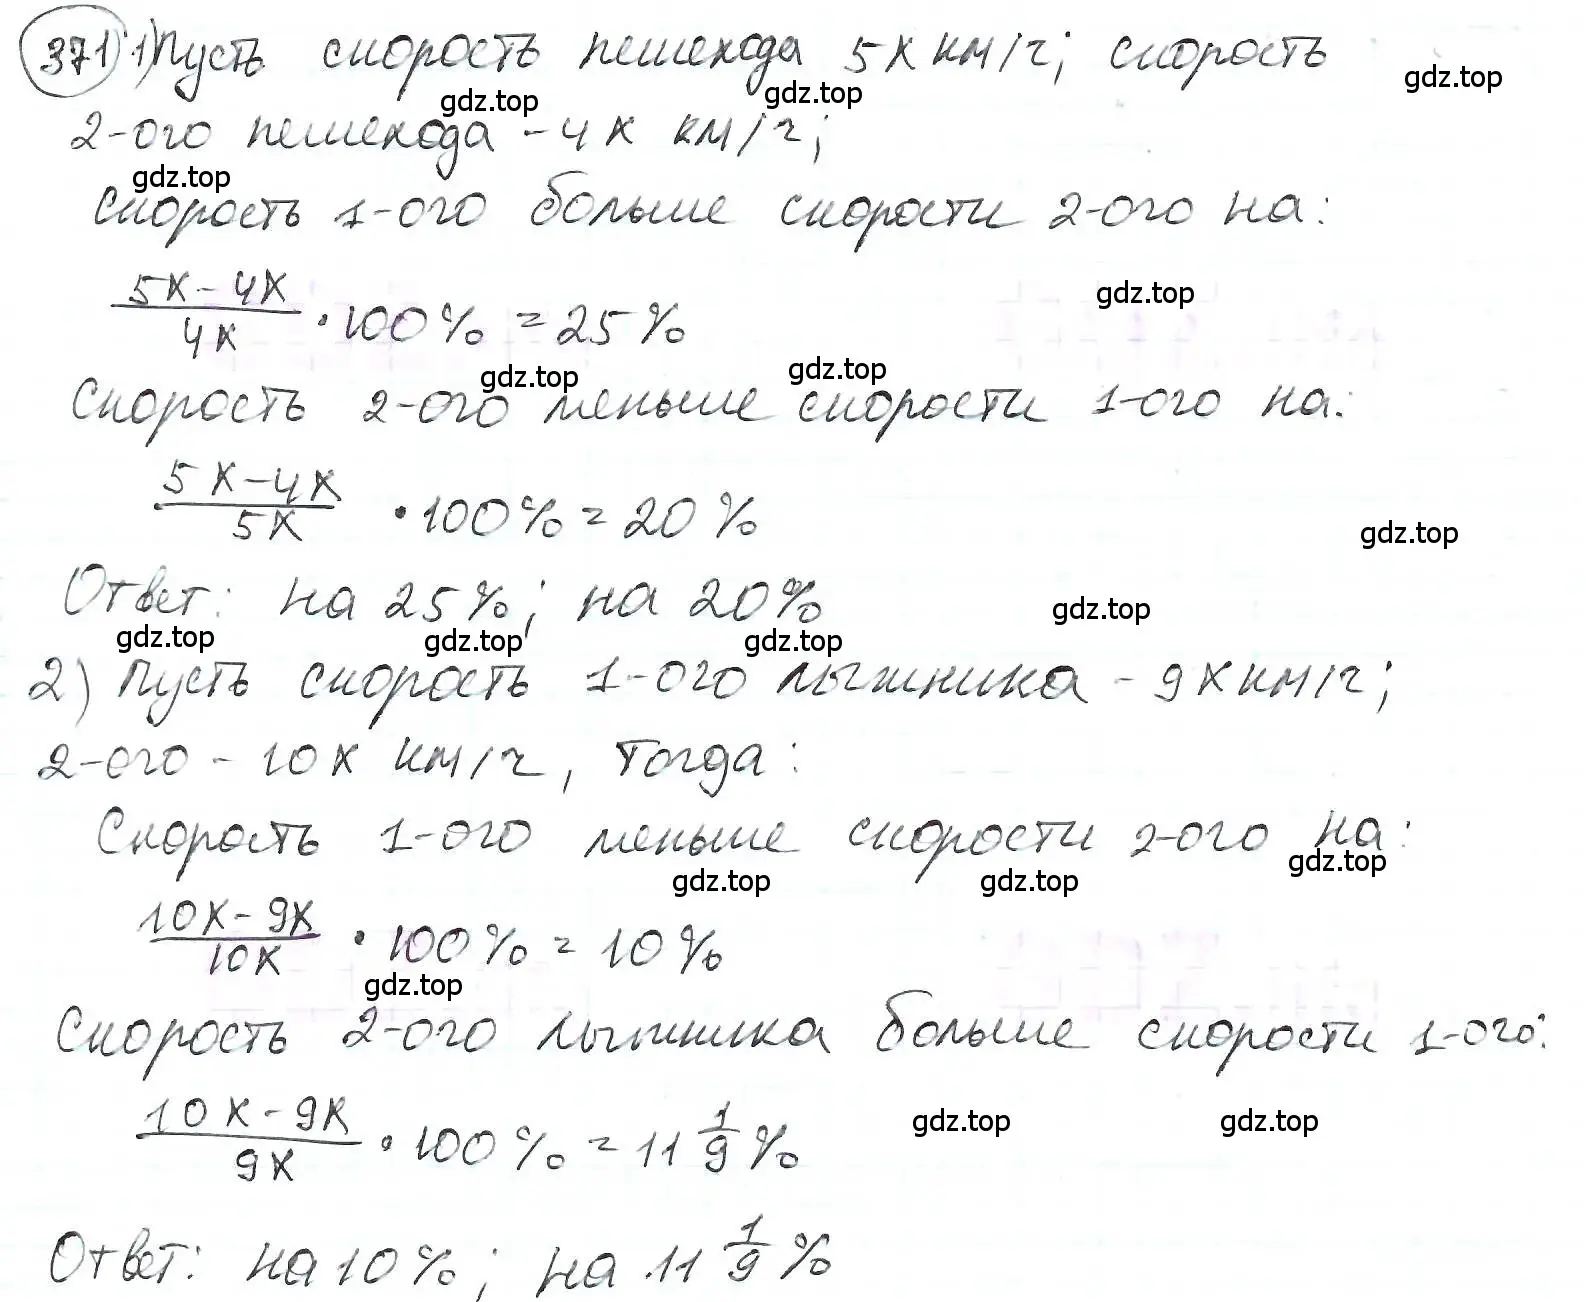 371 1) Пусть скорость пешехода 5x км/ч; скорость
gdz.top gdz.top gdz.top
2-ого пешехода - 4x км/ч;
gdz.top
Скорость 1-ого больше скорости 2-ого на:
gdz.top
(5x - 4x)/4x · 100% = 25%
gdz.top gdz.top
Скорость 2-ого меньше скорости 1-ого на:
(5x - 4x)/5x · 100% = 20%
gdz.top
Ответ: на 25%; на 20%
gdz.top
gdz.top gdz.top gdz.top
2) Пусть скорость 1-ого лыжника - 9x км/ч;
2-ого - 10x км/ч, тогда:
Скорость 1-ого меньше скорости 2-ого на:
gdz.top gdz.top gdz.top
(10x - 9x)/10x · 100% = 10%
gdz.top
Скорость 2-ого лыжника больше скорости 1-ого:
(10x - 9x)/9x · 100% = 11 1/9 %
gdz.top gdz.top
Ответ: на 10%; на 11 1/9 %